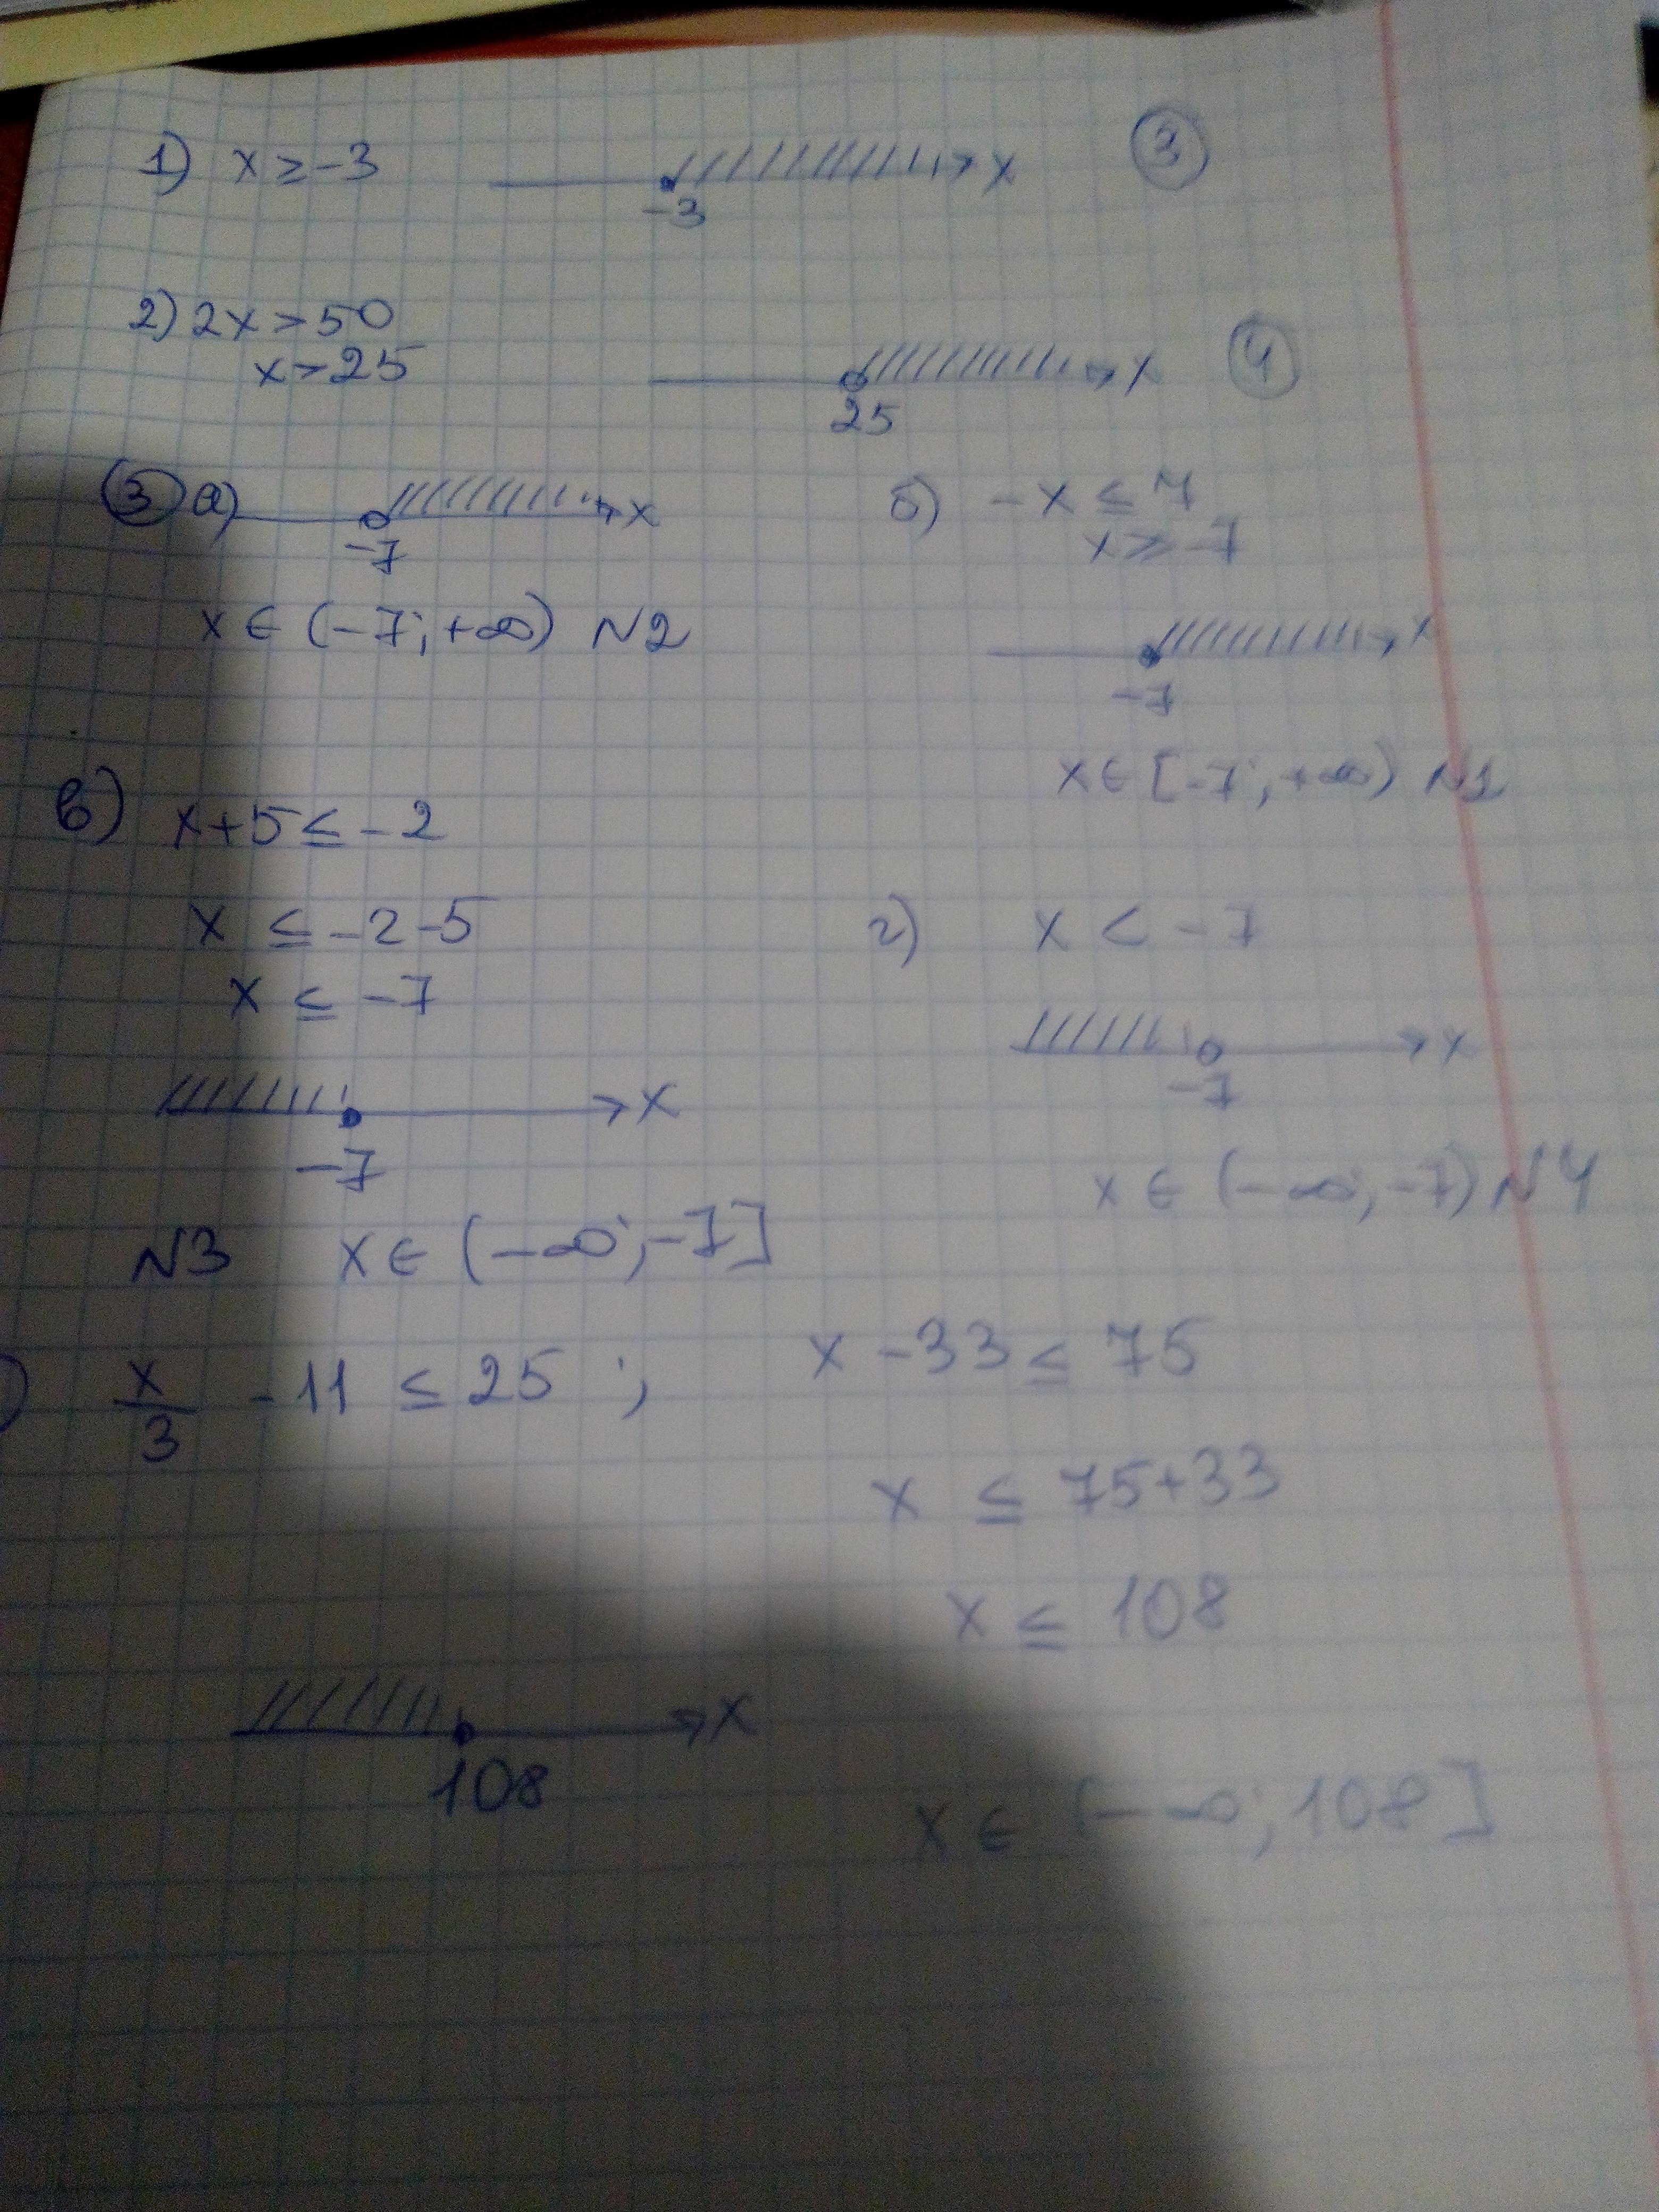 1) x ≥ -3
x
-3
3
2) 2x > 50
x > 25
x
25
4
3 а)
x
-7
x ∈ (-7; +∞) N2
б) -x ≤ 7
x ≥ -7
x
-7
x ∈ [-7; +∞) N1
в) x+5 ≤ -2
x ≤ -2-5
x ≤ -7
x
-7
N3 x ∈ (-∞; -7]
г) x < -7
x
-7
x ∈ (-∞; -7) N4
) x/3 - 11 ≤ 25 ; x - 33 ≤ 75
x ≤ 75+33
x ≤ 108
x
108
x ∈ (-∞; 108]